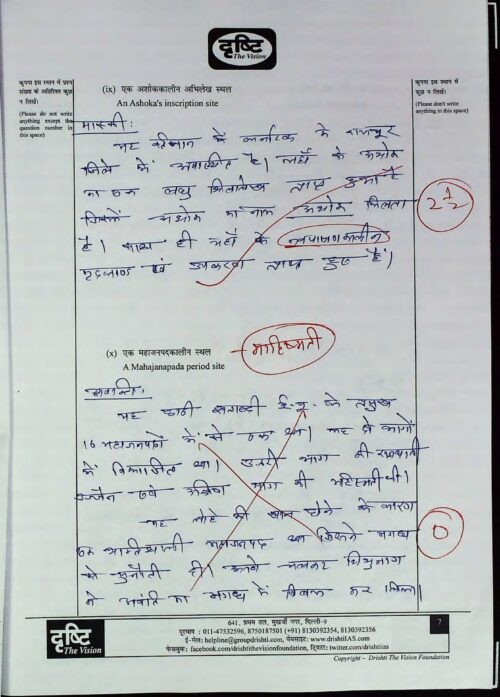 दृष्टि
The Vision
कृपया इस स्थान में प्रश्न
संख्या के अतिरिक्त कुछ
न लिखें।
(Please do not write
anything except the
question number in
this space)
कृपया इस स्थान में
कुछ न लिखें।
(Please don't write
anything in this space)
(ix) एक अशोककालीन अभिलेख स्थल
An Ashoka's inscription site
मास्की:
यह वर्तमान में कर्नाटक के रायचूर
जिले में अवस्थित है। यहाँ से अशोक
का एक लघु शिलालेख प्राप्त हुआ है
जिसमें अशोक का नाम अशोक मिलता
है। साथ ही यहाँ से नवपाषाणकालीन
मृदभाण्ड एवं उपकरण प्राप्त हुए हैं।
2 1/2
(x) एक महाजनपदकालीन स्थल
माहिष्मती
A Mahajanapada period site
अवन्ति:
यह छठी शताब्दी ई.पू. के प्रमुख
16 महाजनपदों में से एक था। यह दो भागों
में विभाजित था। उत्तरी भाग की राजधानी
उज्जैन एवं दक्षिण भाग की महिस्मती थी।
यह लोहे की खान होने के कारण
एक शक्तिशाली महाजनपद था जिसने मगध
को चुनौती दी। आगे चलकर शिशुनाग
ने अवंति का मगध में विलय कर लिया।
0
दृष्टि
The Vision
641, प्रथम तल, मुखर्जी नगर, दिल्ली-9
दूरभाष : 011-47532596, 8750187501 (+91) 8130392354, 8130392356
ई-मेल: helpline@groupdrishti.com, वेबसाइट: www.drishtiIAS.com
फेसबुक: facebook.com/drishtithevisionfoundation, ट्विटर: twitter.com/drishtiias
7
Copyright – Drishti The Vision Foundation